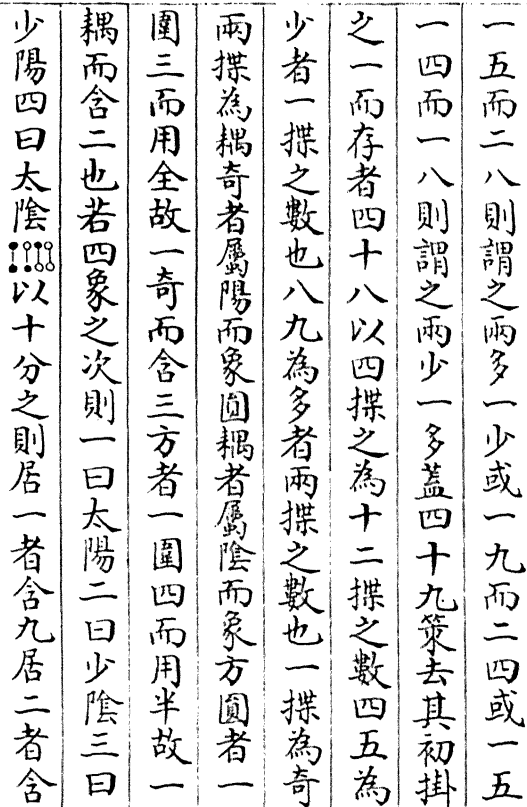 一五而二八則謂之兩多一少或一九而二四或一五
一四而一八則謂之兩少一多蓋四十九策去其初掛
之一而存者四十八以四揲之為十二揲之數四五為
少者一揲之數也八九為多者兩揲之數也一揲為奇
兩揲為耦奇者屬陽而象圓耦者屬陰而象方圓者一
圍三而用全故一奇而含三方者一圍四而用半故一
耦而含二也若四象之次則一曰太陽二曰少陰三曰
少陽四曰太陰以十分之則居一者含九居二者含